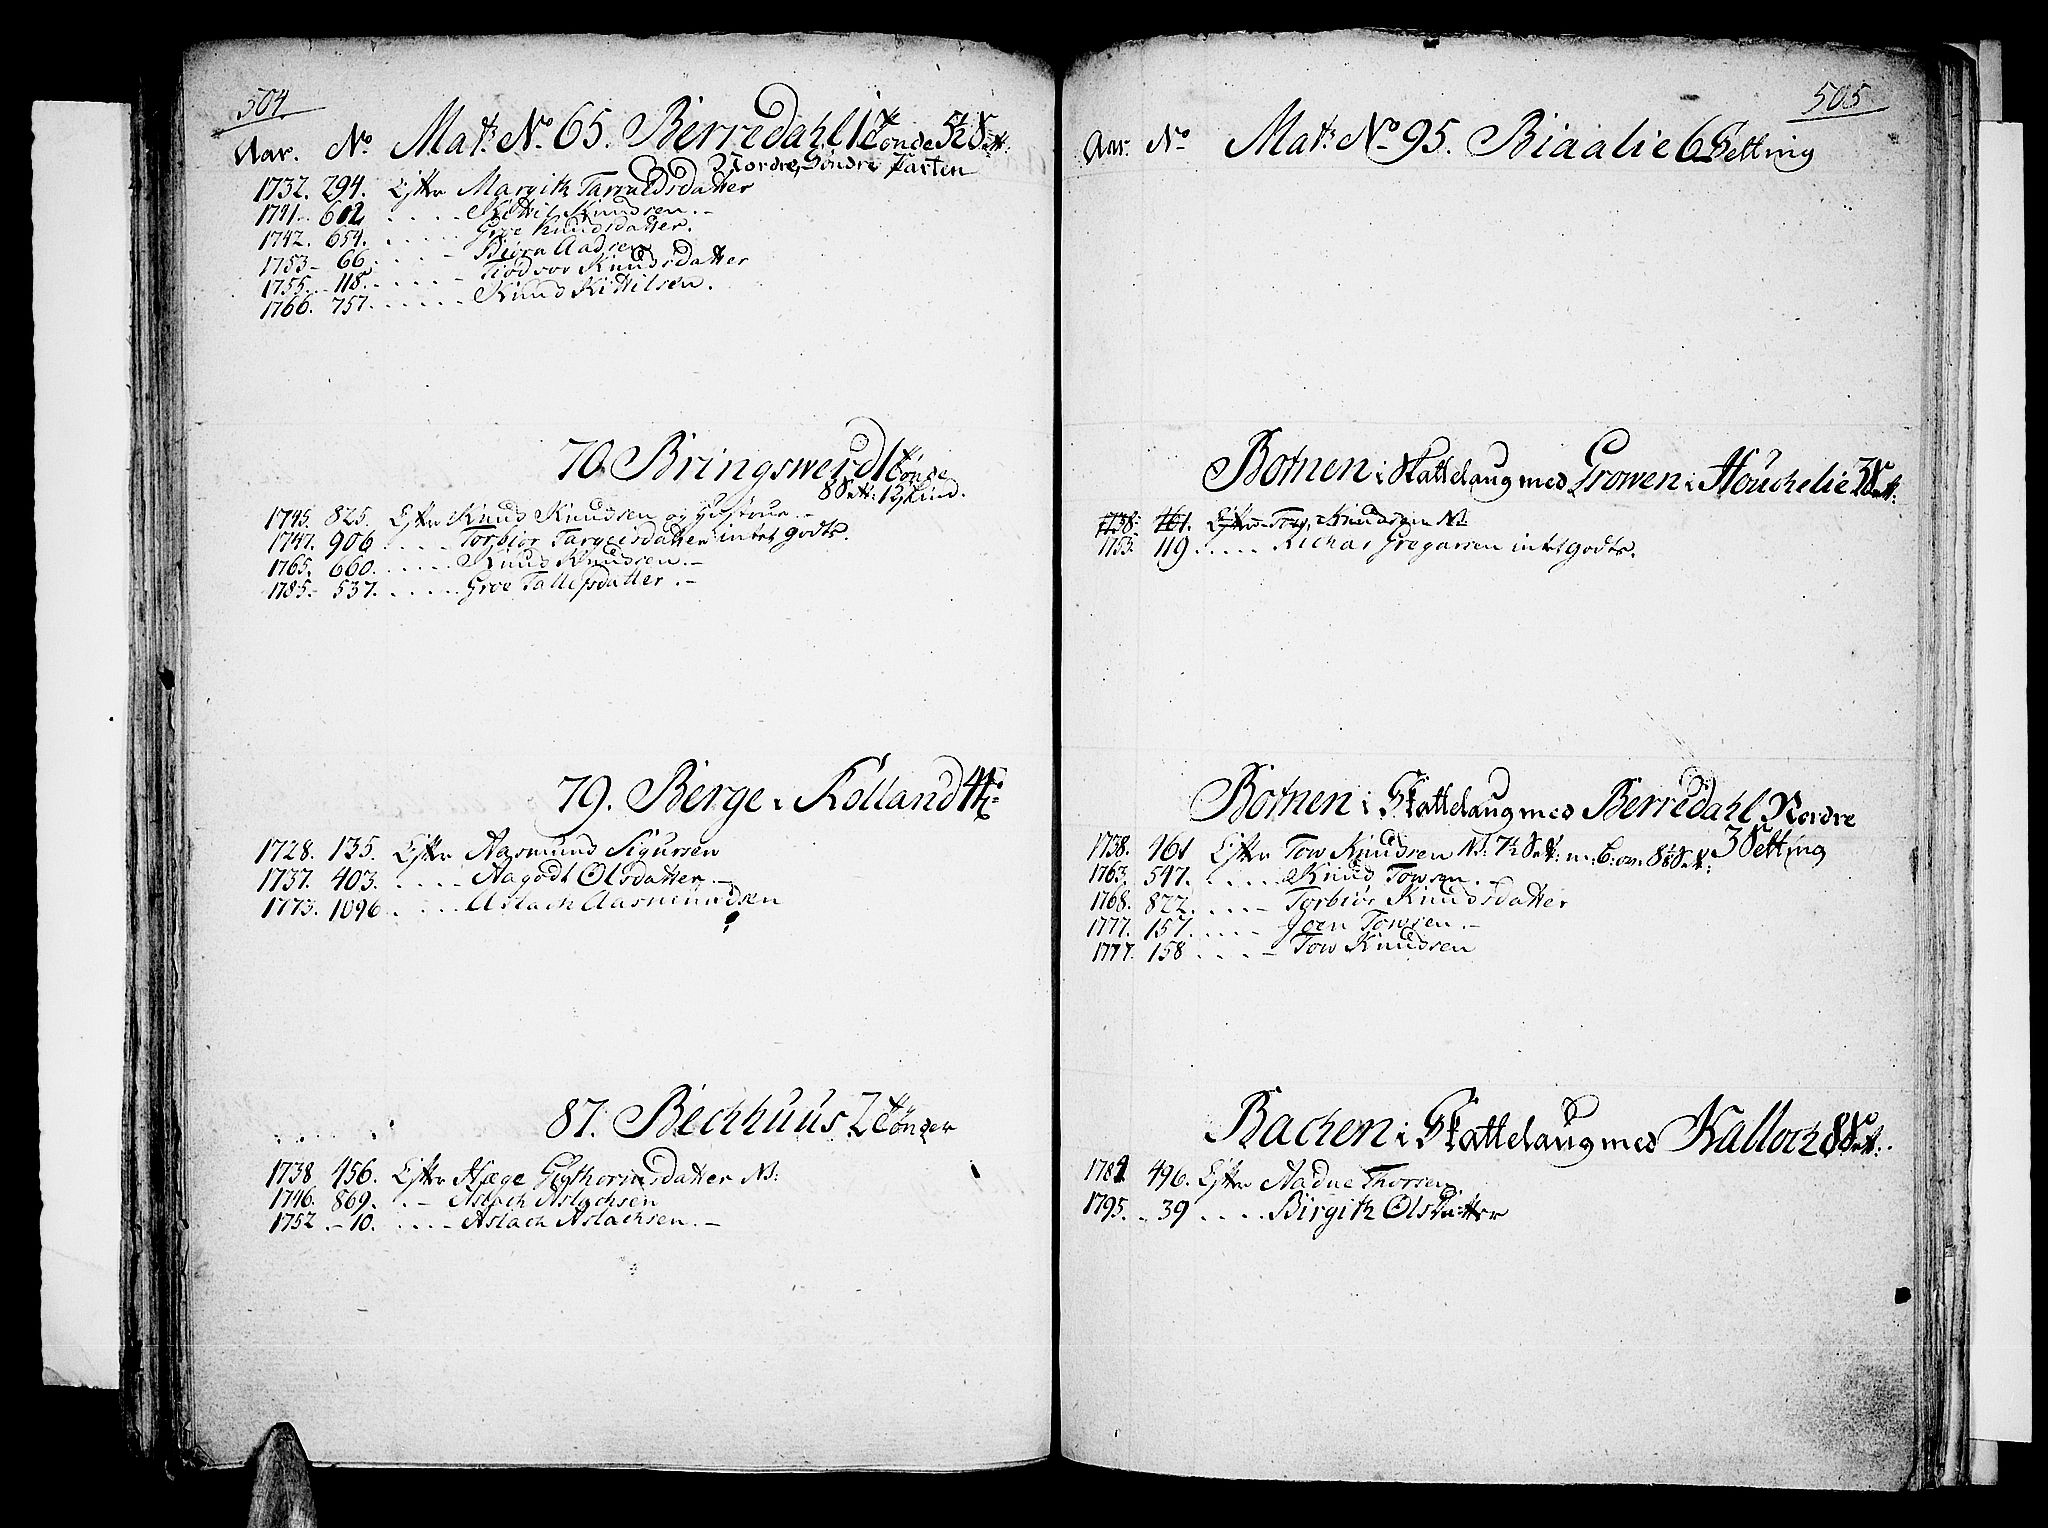 504
Aar. No. Mat: No. 65. Berredahl 1 tönde 5½ Sett:
Nordre, Söndre Parten
1732. 294. Efter Margith Tarjuldsdatter
1741. 602 . . . . . Kittil Knudsen. –
1742. 654. . . . . . Groe Knudsdatter.
1753 – 66. . . . . – Biörn Aadsen
1755. – 118. . . . . – Tiödvor Knudsdatter
1766. 757. . . . . . Knud Kittilsen.
70. Bringswerd 1 tönde
8 Sett: 1 Skind.
1745. 825. Efter Knud Knudsen og Hustrue. –
1747. 906 . . . . Torbiör Targeisdatter intet godts.
1765. 660. . . . . . Knud Knudsen. –
1785. – 537. . . . . . Groe Tallefsdatter. –
79. Berge i Kolland 4 tt:
1728. 135. Efter Aasmund Sigursen
1737. 403. . . . . Aagodt Olsdatter –
1773. 1096 . . . . Aslach Aasmundsen
87. Bechhuus 2 tönder
1738 456. Efter Hæge Guthormsdatter N:
1746. 869. . – Aslach Aslachsen
1752 – 10. . . . . Aslach Aslachsen. –
505
Aar. No Mat: No. 95. Biaalie 6 Setting
Botnen i Skattelaug med Growen i Houchelie 3 Sett:
1738: 461. Efter Tow Knudsen N:
1753: 119 . . . . . Kichar Gregarsen intet godts.
Botnen i Skattelaug med Berredahl Nordre
3 Setting
1738. 461 Efter Tow Knudsen N: 7½ Sett: m: B: om 8½ Sett:
1763. 547. . . . . . Knud Towsen. –
1768. 822. . . . – Torbiör Knudsdatter
1777. 157. . . . . – Joen Towsen. –
1777. 158 . . . . – Tow Knudsen
Bachen i Skattelaug med Kalloch 8 Sett:
1784 496. Efter Aadne Thorsen
1795. . 39 . . . . Birgith Olsdatter